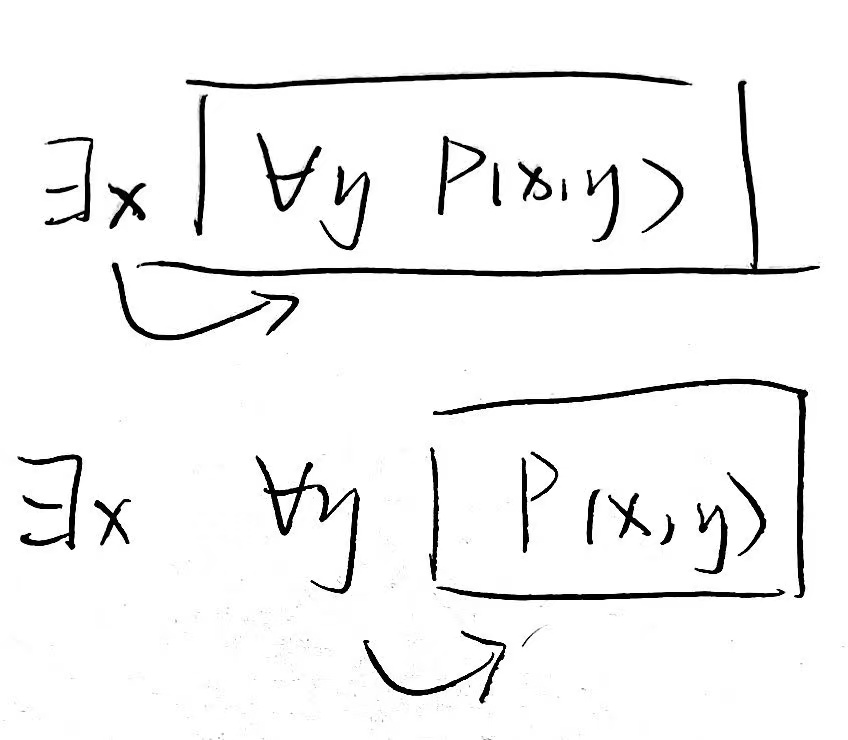 ∃x ∀y P(x,y)
∃x ∀y P(x,y)